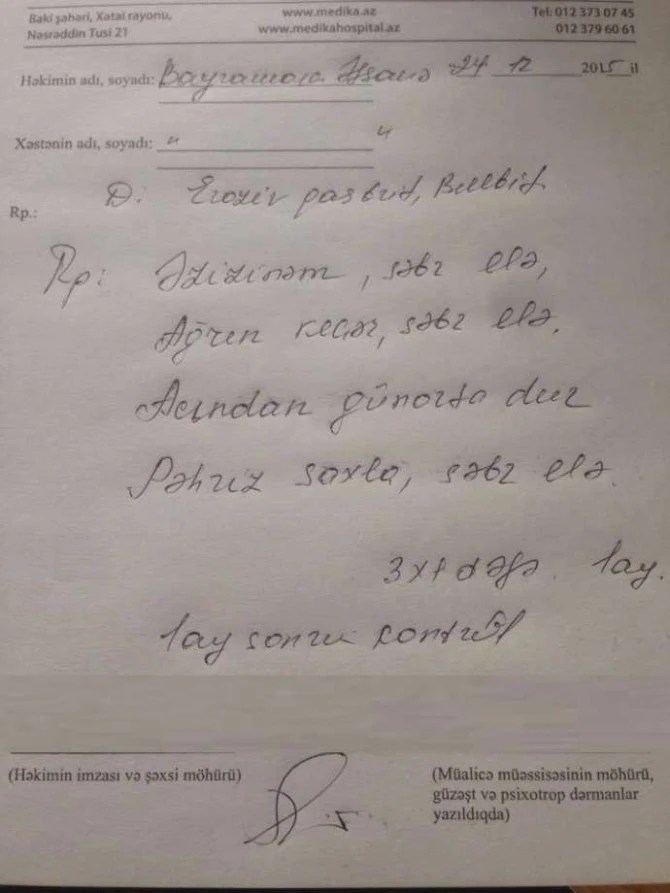 Bakı şəhəri, Xətai rayonu,
Nəsrəddin Tusi 21
www.medika.az
www.medikahospital.az
Tel: 012 373 07 45
012 379 60 61
Həkimin adı, soyadı: Bayramova Əfsanə 24 12 2015 il
Xəstənin adı, soyadı: " "
Rp.:
D: Eroziv qastrit, Bulbit
Rp: Əzizinəm, səbr elə,
Ağren keçər, səbr elə.
Acından günorta dur
Pəhriz saxla, səbr elə.
3x1 dəfə. 1ay.
1ay sonra kontrol
(Həkimin imzası və şəxsi möhürü)
(Müalicə müəssisəsinin möhürü,
güzəşt və psixotrop dərmanlar
yazıldıqda)